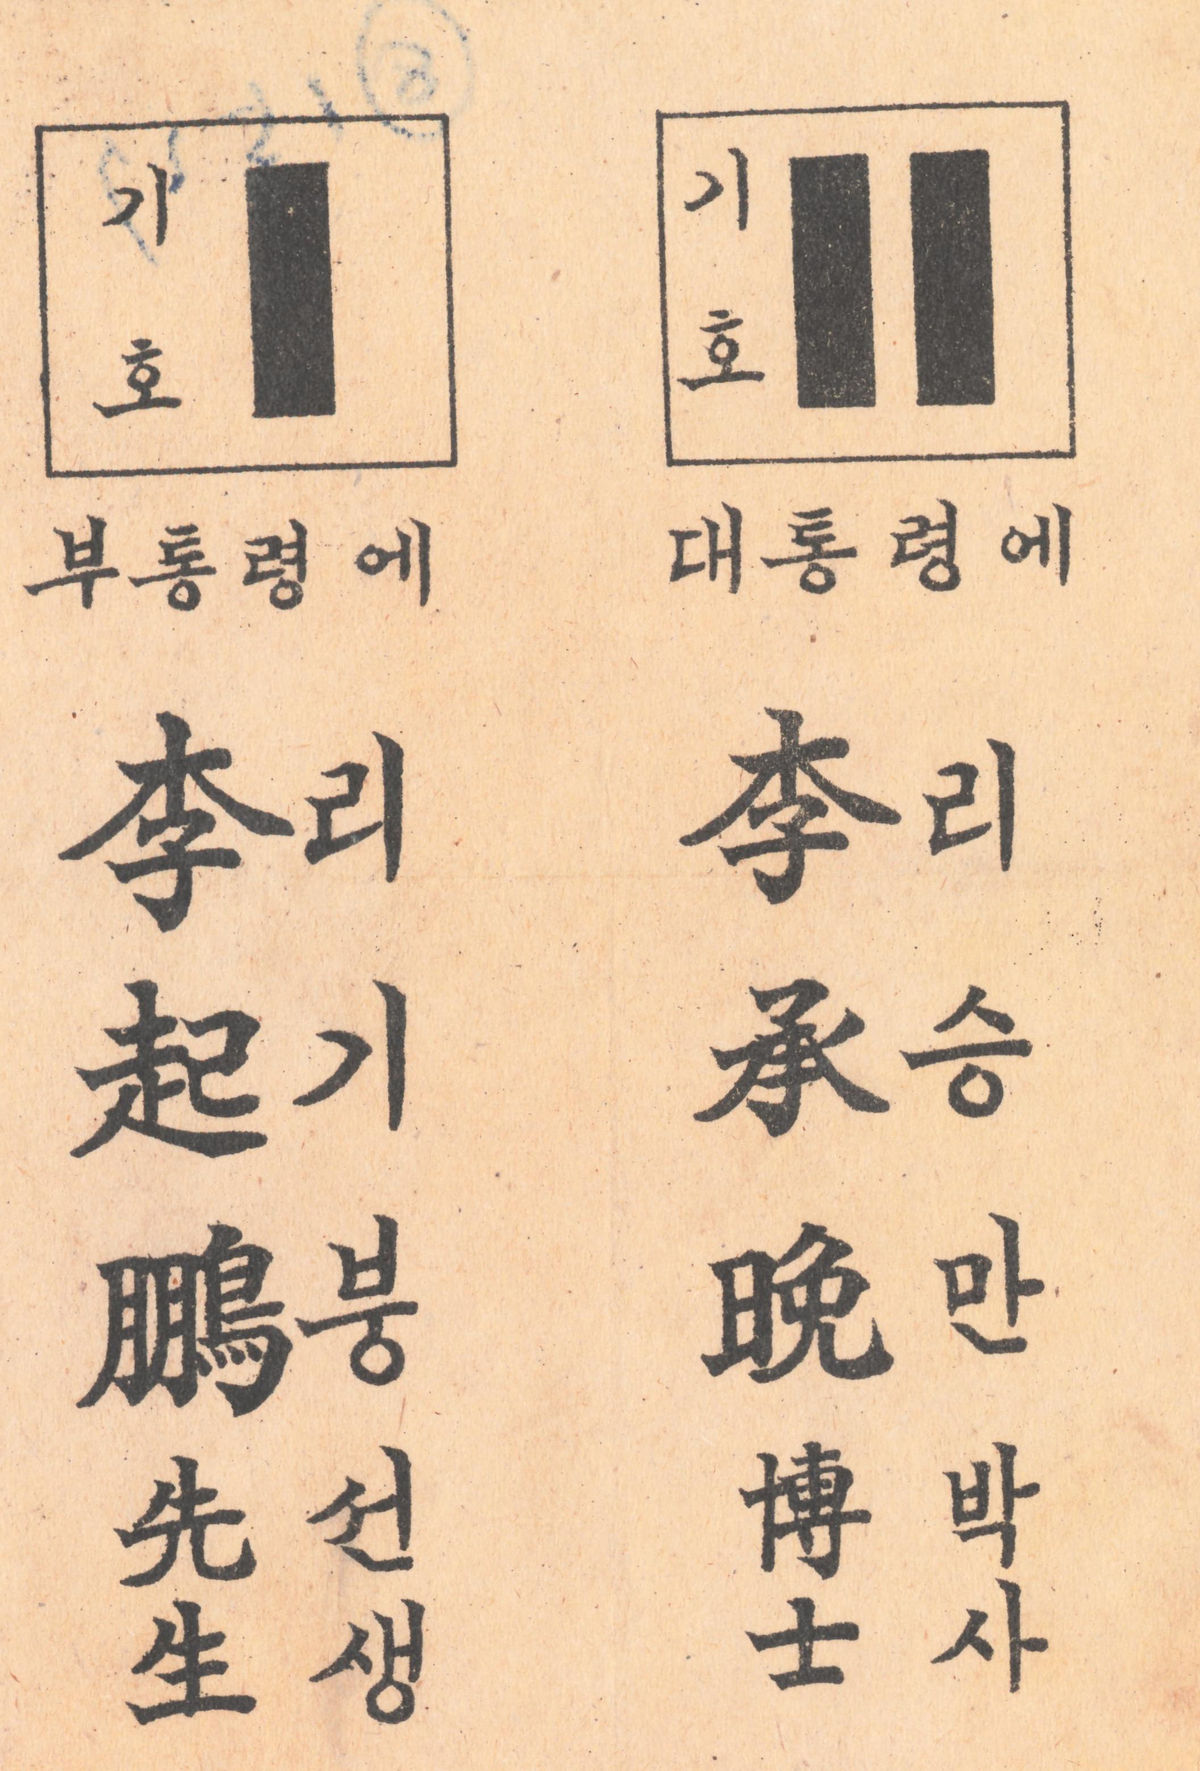 기호 II
대통령에
리승만박사
李承晩博士
기호 I
부통령에
리기붕선생
李起鵬先生